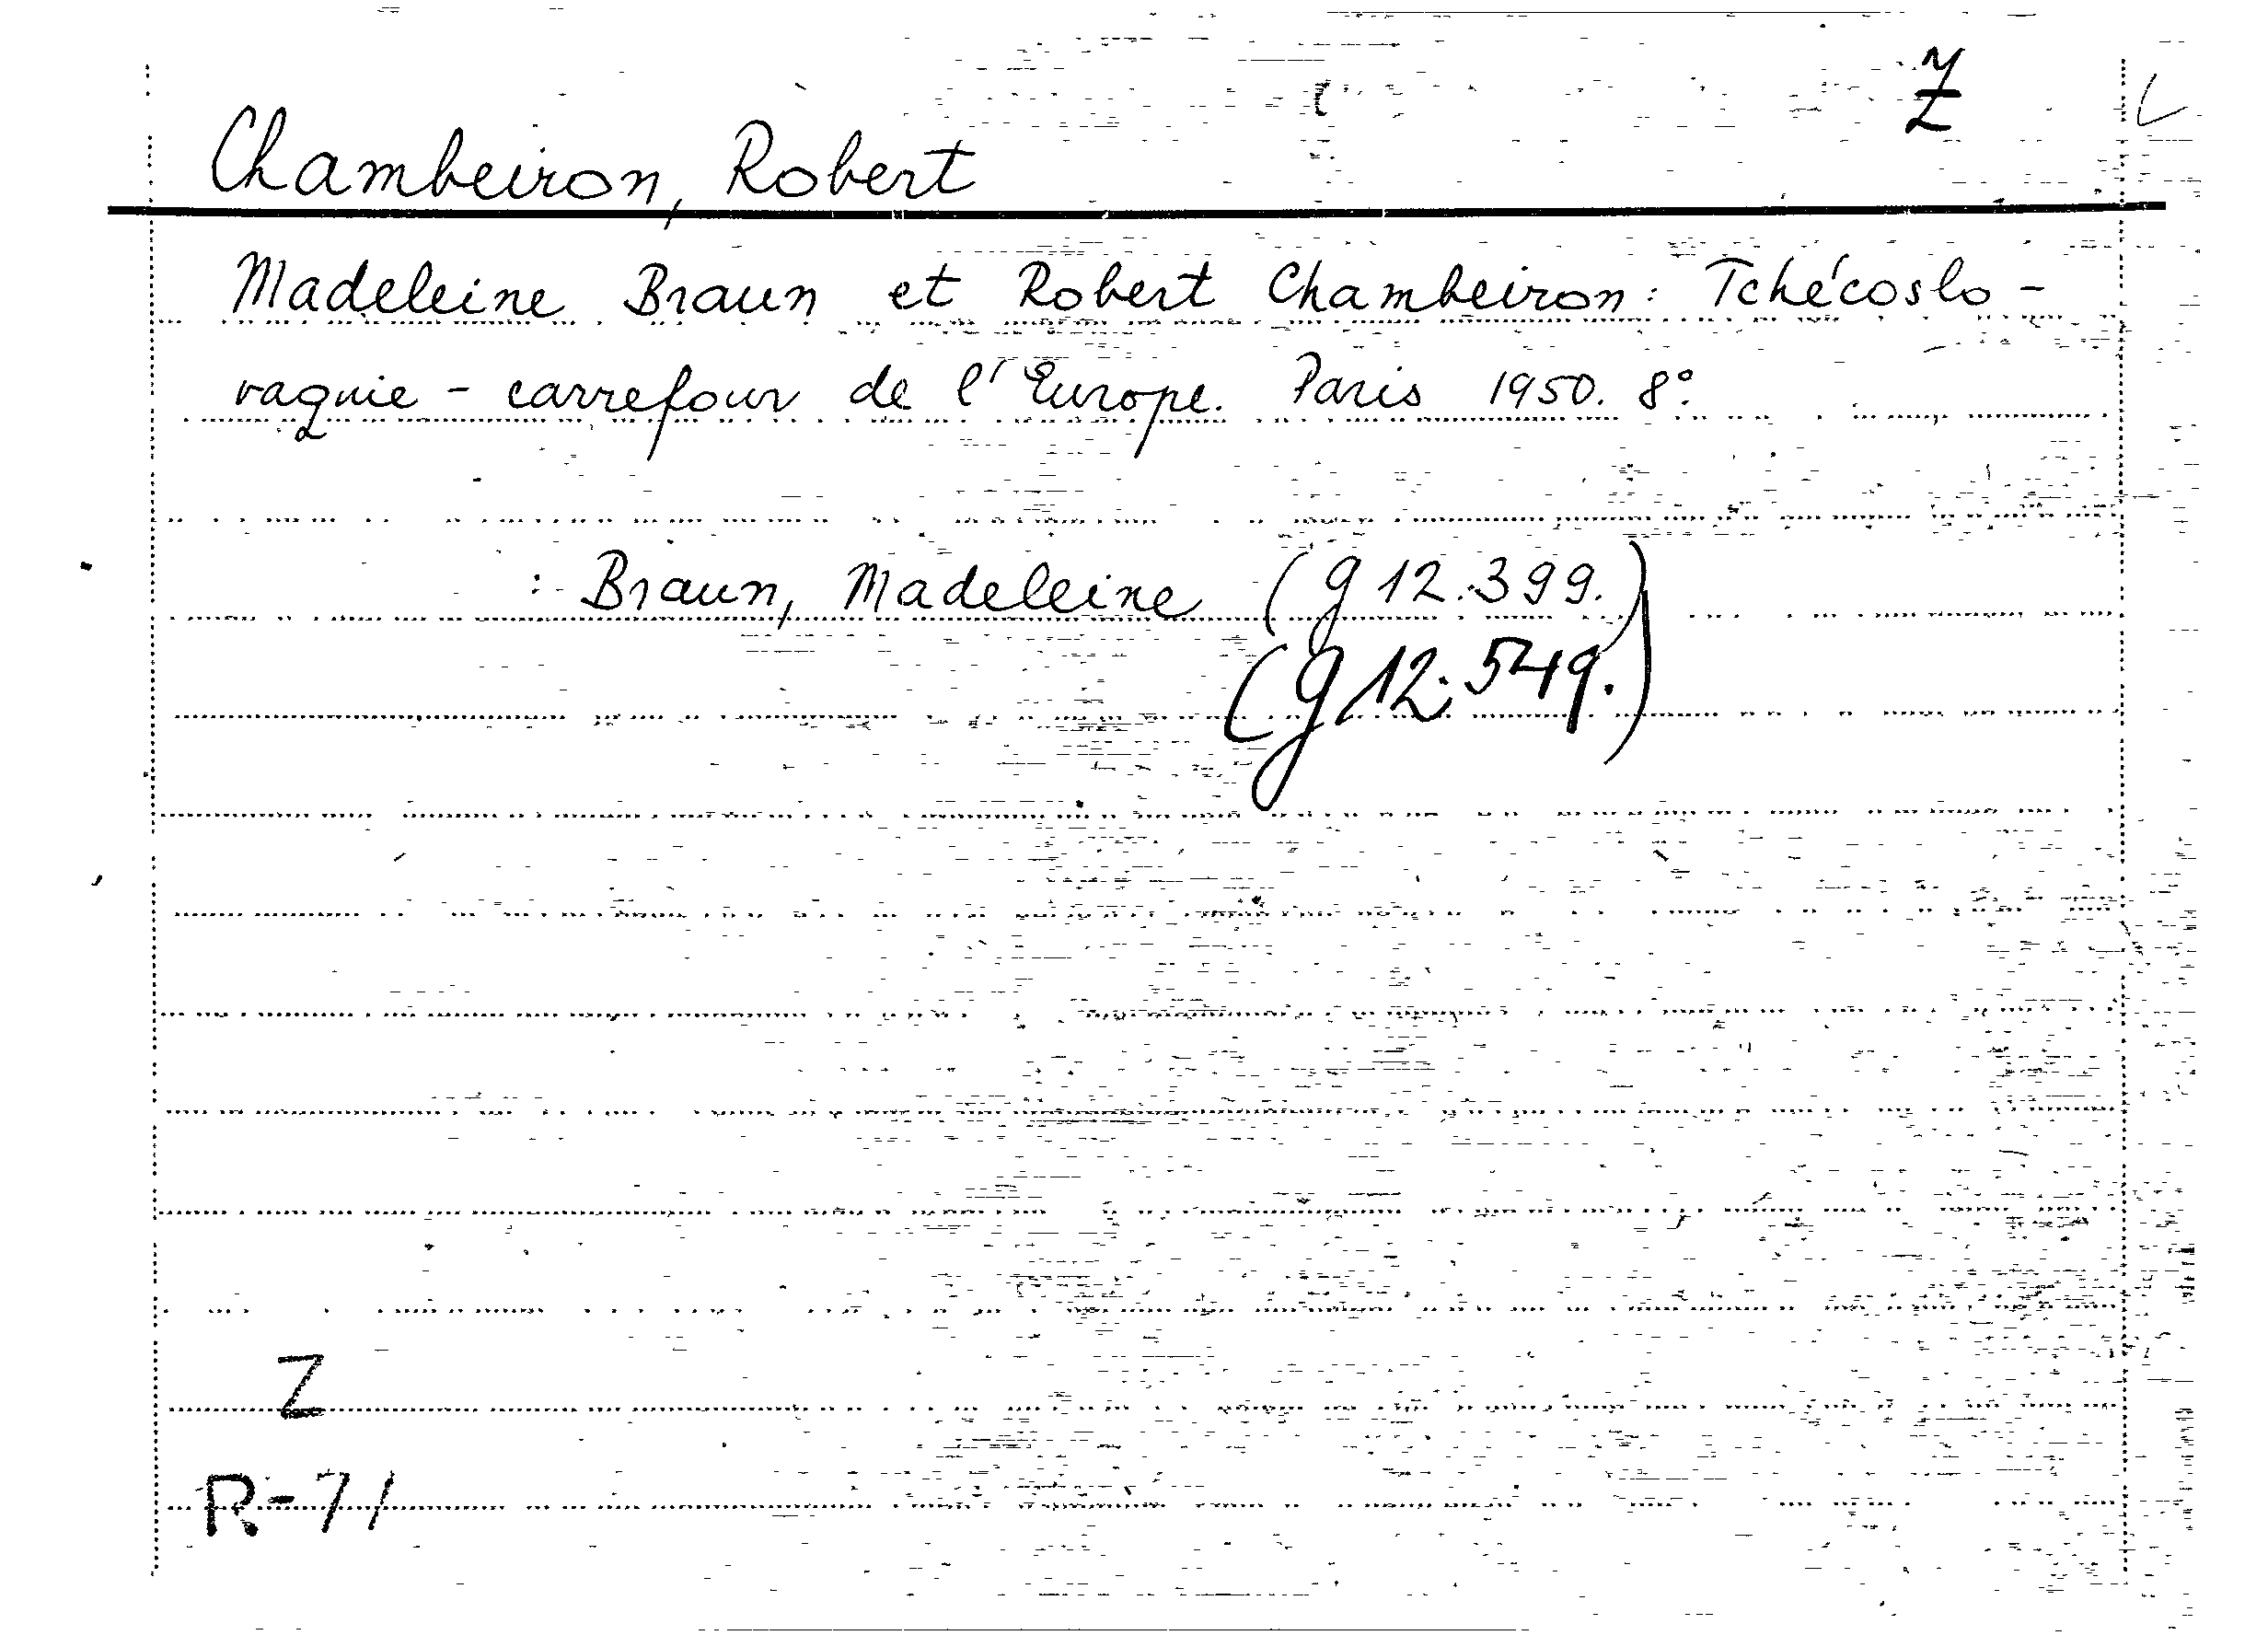 Z
Chambeiron, Robert
Madeleine Braun et Robert Chambeiron: Tchécoslo-
vaquie - carrefour de l'Europe. Paris 1950. 8°.
: Braun, Madeleine (g 12.399.)
(g 12.549.)
Z
R-71